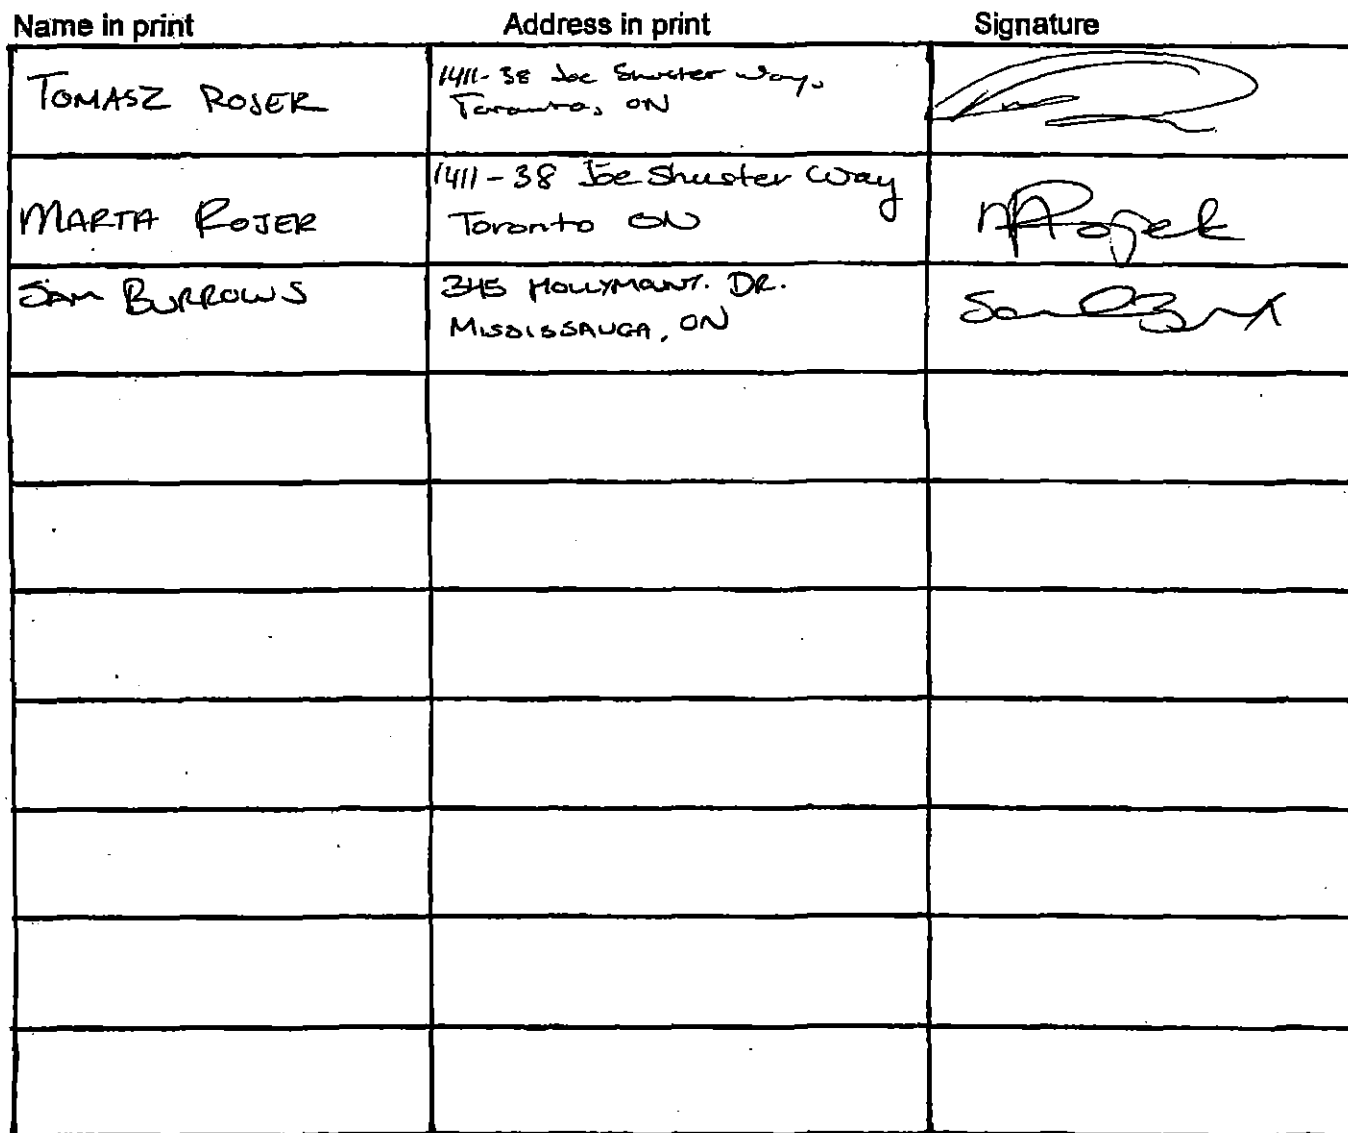 Name in print Address in print Signature
TOMASZ ROJEK 1411-38 Joe Shuster Way,
Toronto, ON
MARTA ROJEK 1411-38 Joe Shuster Way
Toronto ON
MRojek
SAM BURROWS 345 HOLLYMOUNT. DR.
MISSISSAUGA, ON